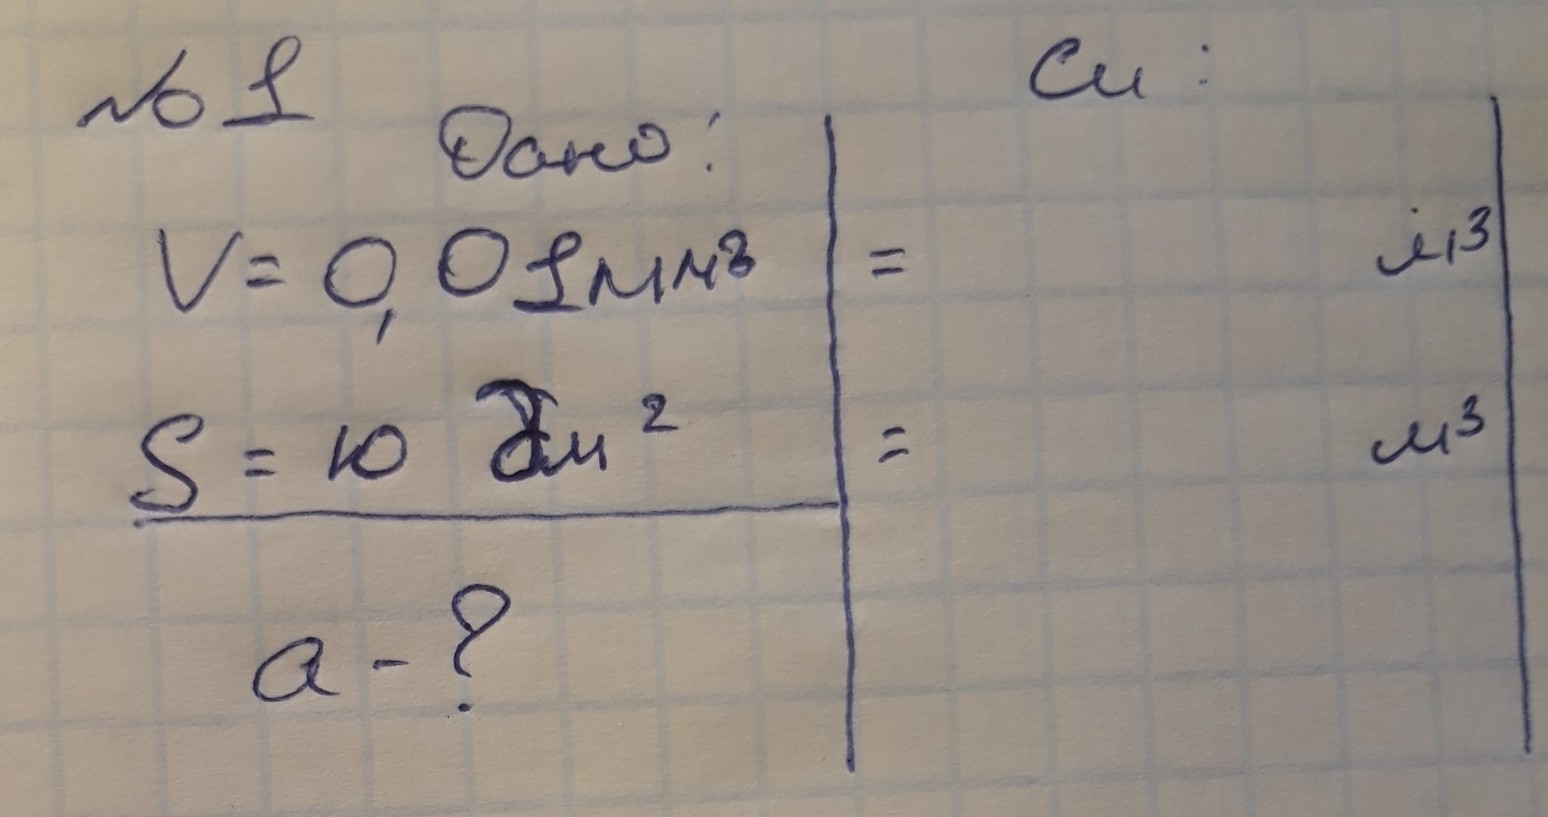 № 1
Си :
Дано :
V = 0,01мм³ = м³
S = 10 дм² = м³
a - ?